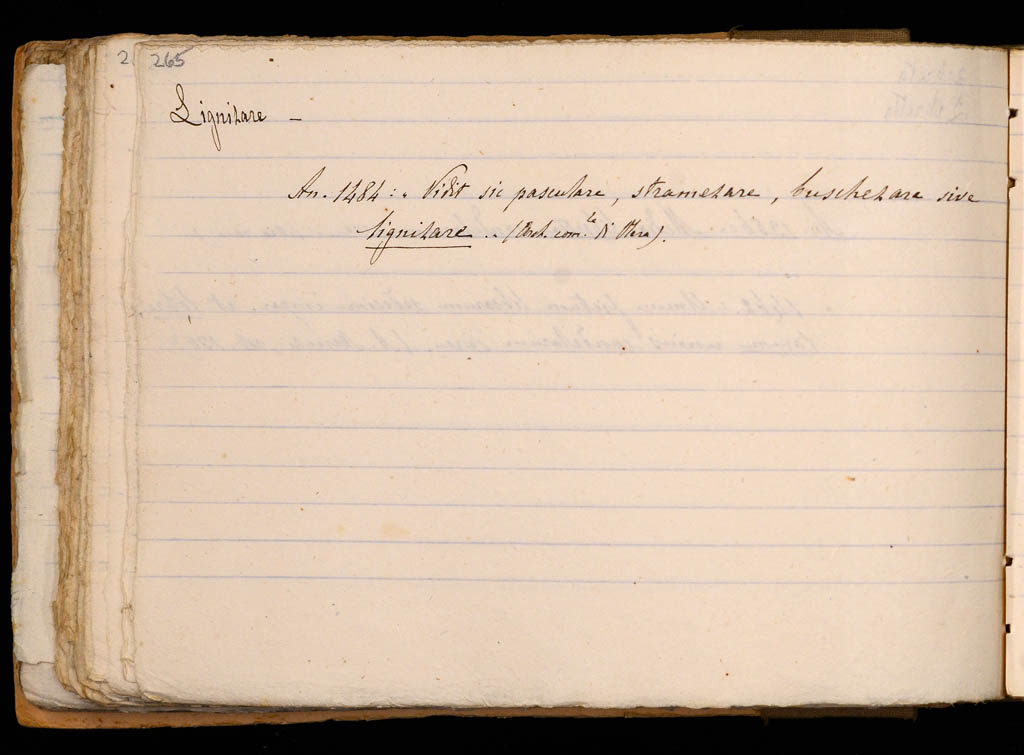 265
Lignizare -
An. 1484 : „ Vidit sic pasculare, stramezare, buschezare sive
lignizare „ (Arch. com.le di Ulera).